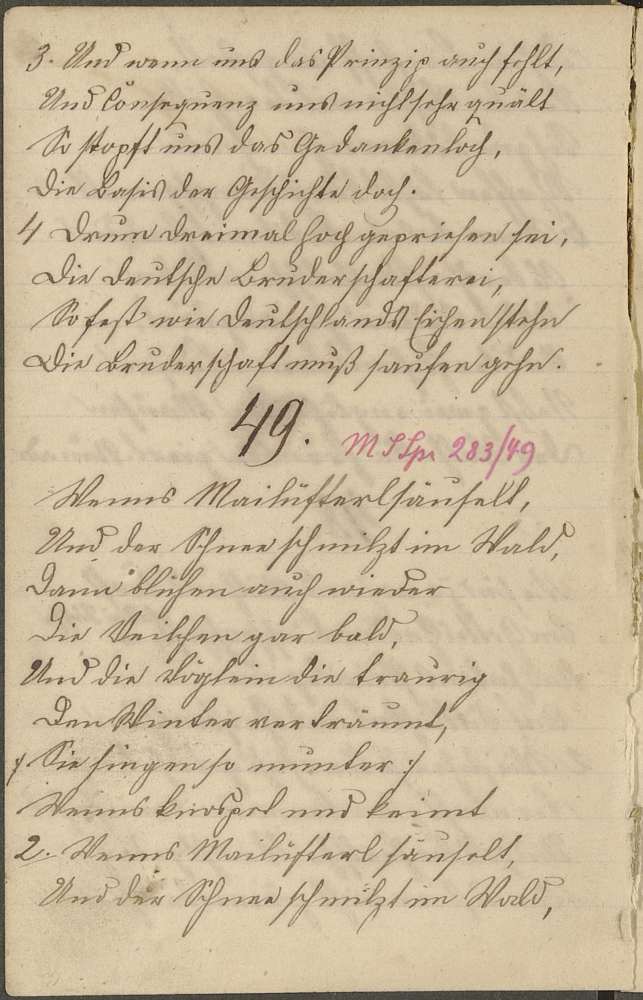 3. Und wenn uns das Prinzip auch fehlt,
Und Consequenz uns nicht sehr quält
So stopft uns das Gedankenloch,
Die Basis der Geschichte doch.
4 Drum dreimal hoch gepriesen sei,
Die deutsche Bruderschafterei,
So fest wie Deutschlands Eichen stehn
Die Bruderschaft muß saufen gehn.
49. M S Spr 283/49
Wenns Mailüfterl säuselt,
Und der Schnee schmilzt im Wald,
Dann blühen auch wieder
Die Veilchen gar bald,
Und die Vöglein die traurig
Den Winter verträumt,
/: Sie singen so munter :/
Wenns knospet und keimt
2. Wenns Mailüfterl säuselt,
Und der Schnee schmilzt im Wald,